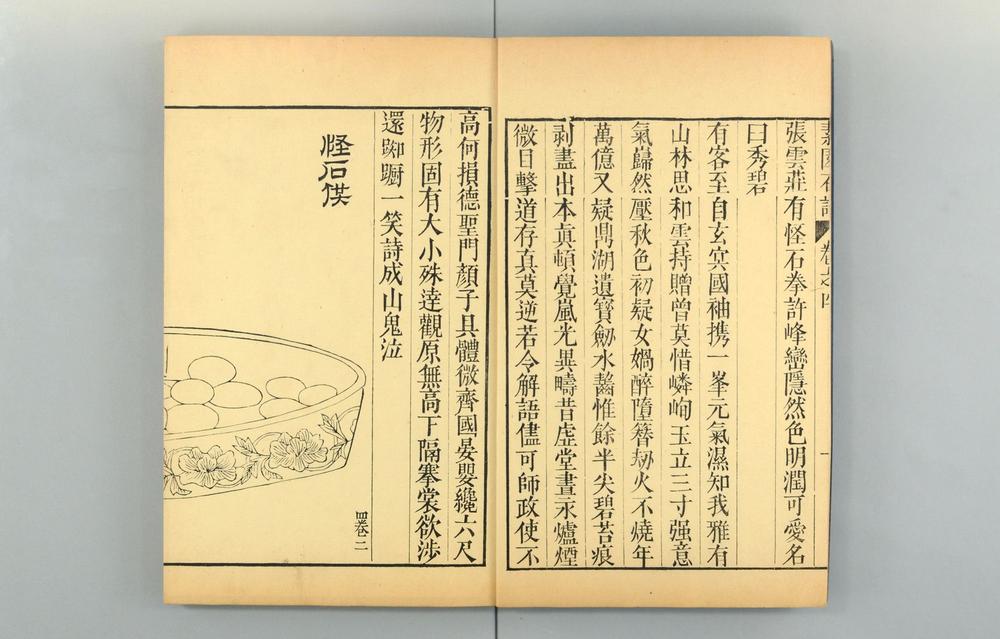 素園石譜 卷之四 一
張雲莊有怪石拳許峰巒隱然色明潤可愛名
曰秀碧
有客至自玄㝠國袖携一峯元氣濕知我雅有
山林思和雲持贈曾莫惜嶙峋玉立三寸强意
氣巋然壓秋色初疑女媧醉墮簪刼火不燒年
萬億又疑鼎湖遺寶劒水齧惟餘半尖碧苔痕
剥盡出本眞頓覺嵐光異疇昔虛堂晝永爐煙
微目擊道存真莫逆若令解語儘可師政使不
高何損德聖門顏子具體微齊國晏嬰纔六尺
物形固有大小殊達觀原無高下隔搴裳欲涉
還踟蹰一笑詩成山鬼泣
怪石供
四卷二